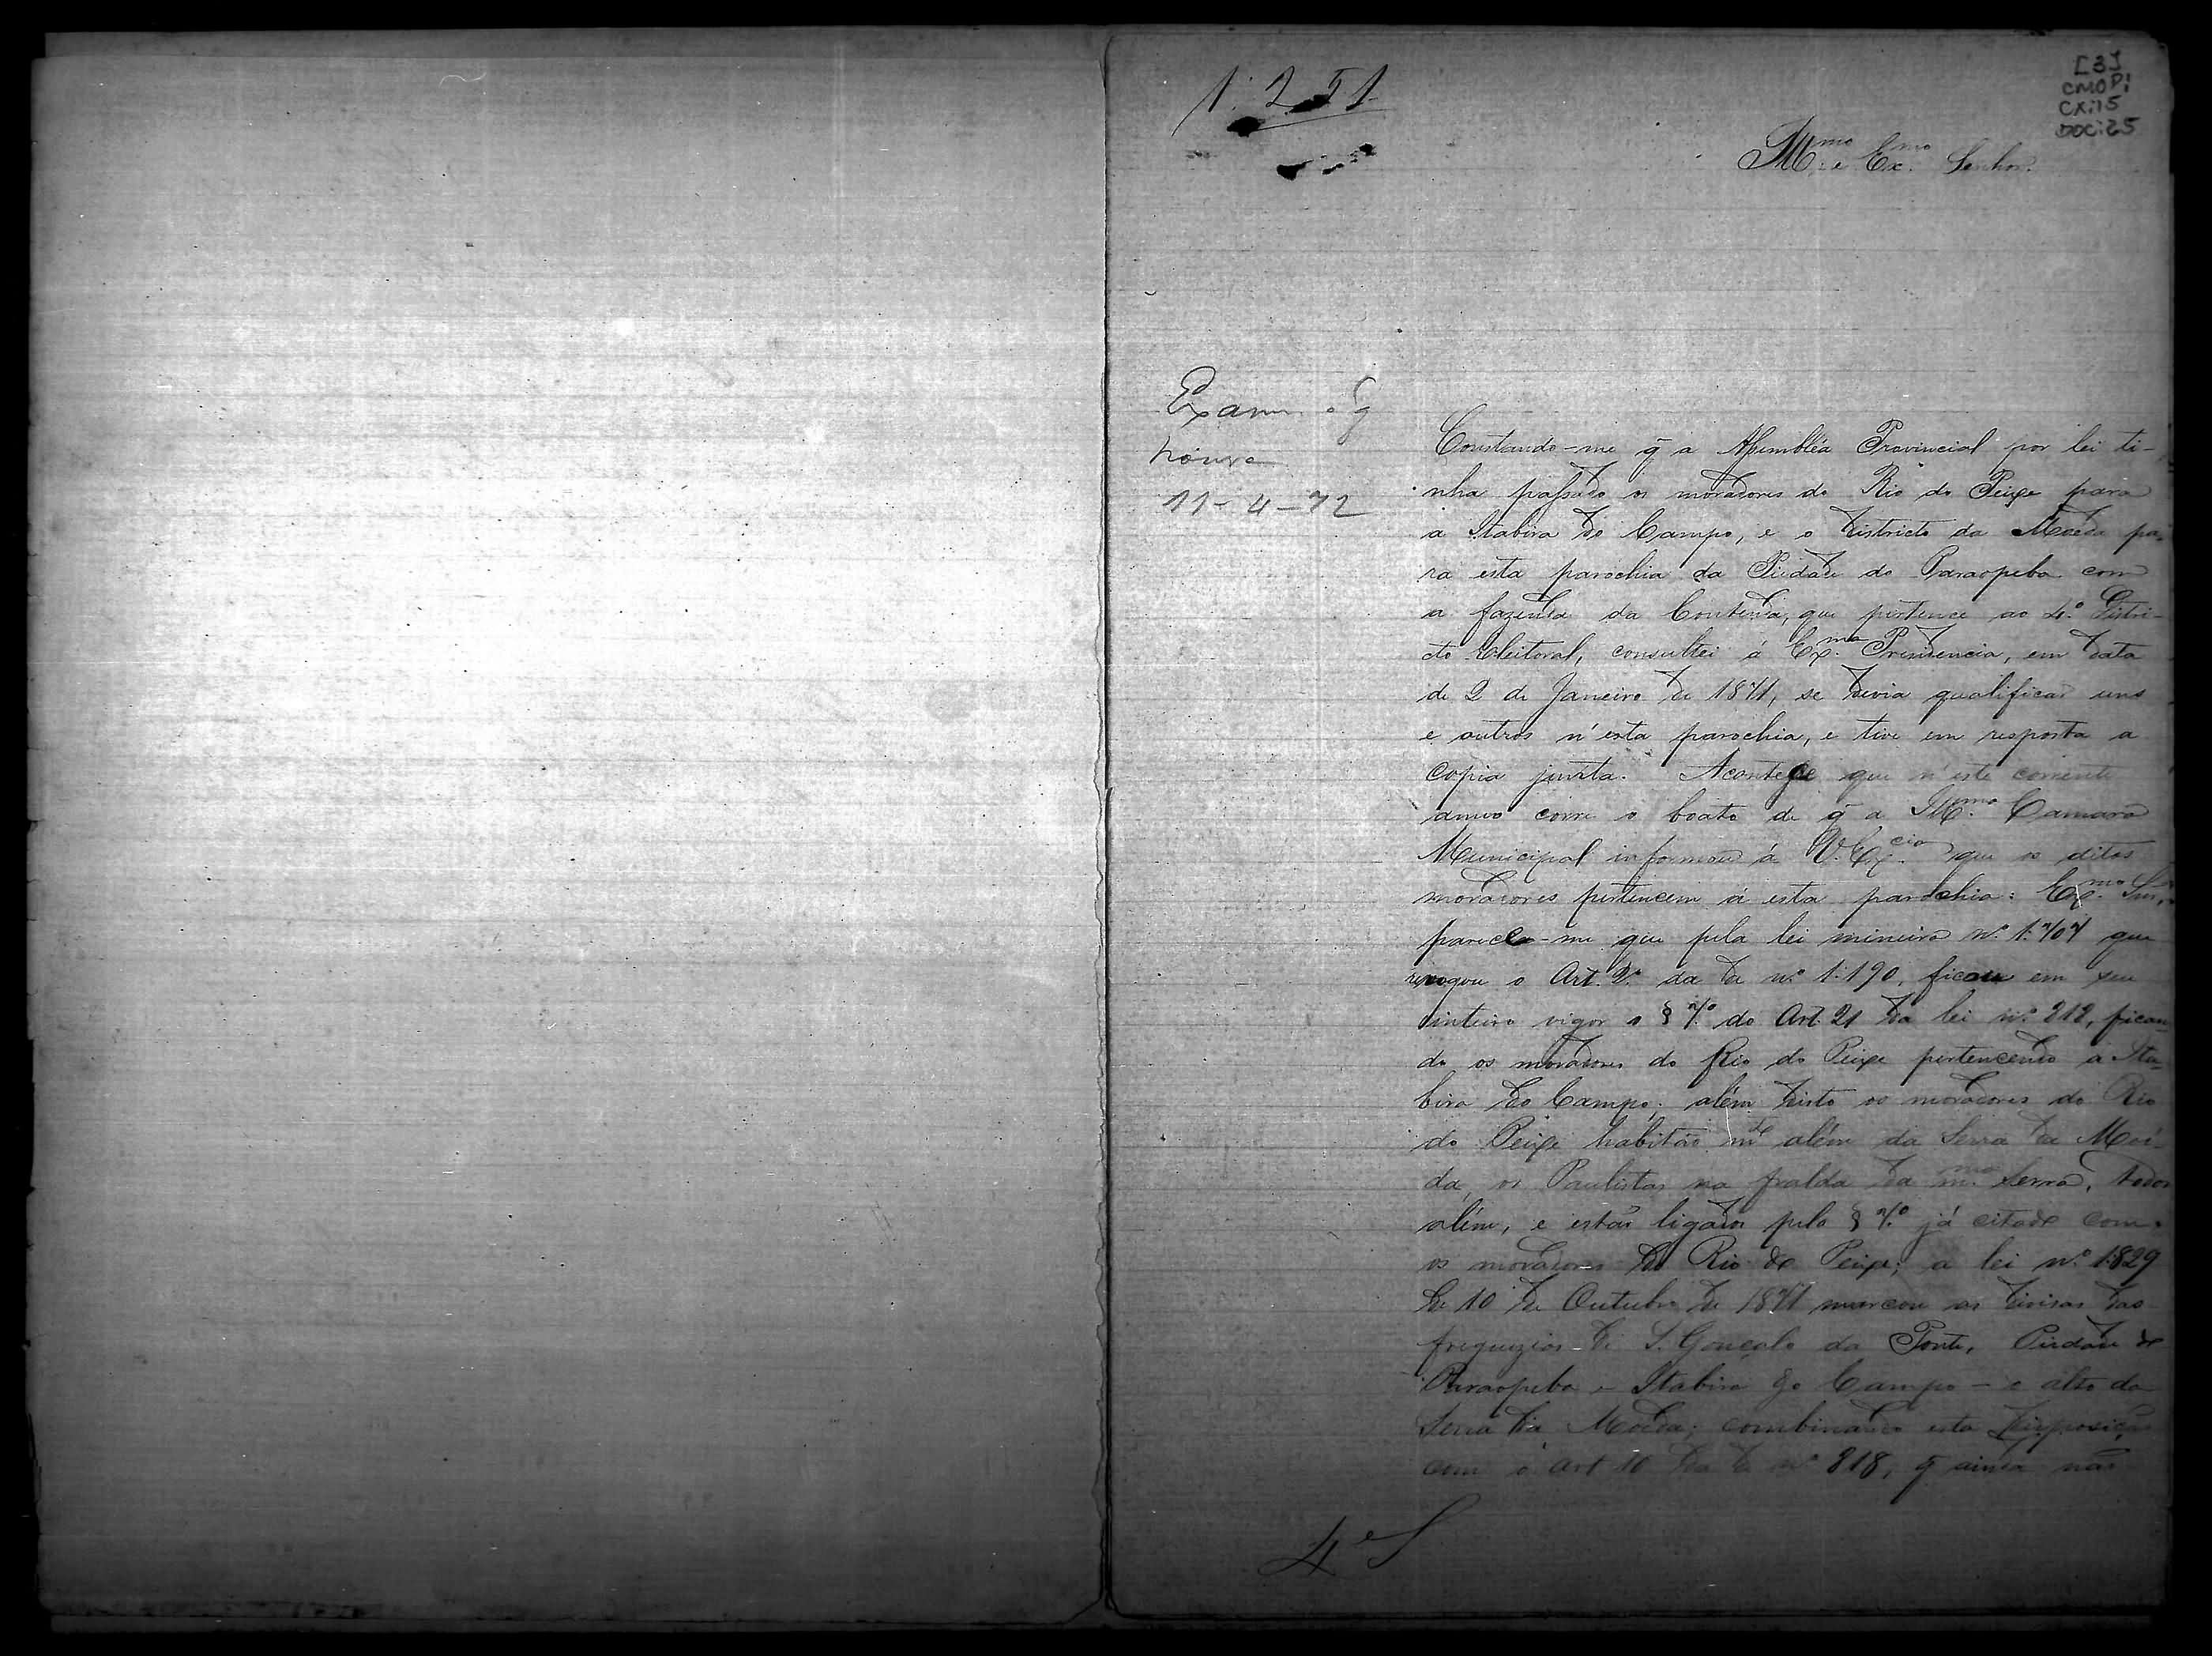 [3]
CMOP:
CX:15
DOC:25
1:251
Illmo e Exmo Senhor.
Exam. o q
houve
11-4-72
Constando-me q̃ a Assembléa Provincial por lei ti-
nha passado os moradores do Rio do Peixe para
a Itabira do Campo, e o districto da Moéda pa-
ra esta parochia da Piedade do Paraopeba com
a fazenda da Contenda, que pertence ao 4.º Distri-
cto Eleitoral, consultei á Exma Presidencia, em data
de 2 de Janeiro de 1871, se devia qualificar uns
e outros n'esta parochia, e tive em resposta a
copia junta. Acontece que n'este corrente
anno corre o boato de q̃ a Illma Camara
Municipal informou á V. Excia que os ditos
moradores pertencem á esta parochia: Exmo Snr,
parece-me que pela lei mineira nº 1:707 que
revogou o Art. 2º da de nº 1:190, ficou em seu
inteiro vigor o § 7º do Art. 21 da lei nº 212, fican-
do os moradores do Rio do Peixe pertencendo a Ita-
bira do Campo; além disto os moradores do Rio
do Peixe habitão mto além da Serra da Moé-
da, os Paulistas na fralda da mma Serra, todos
além, e estão ligados pelo § 7º já citado com
os moradores do Rio do Peixe; a lei nº 1829
de 10 de Outubro de 1871 marcou as divisas das
freguezias de S. Gonçalo da Ponte, Piedade do
Paraopeba e Itabira do Campo - o alto da
Serra da Moéda; combinando esta disposição
com o art 10 da de nº 818, q̃ ainda não
4 S